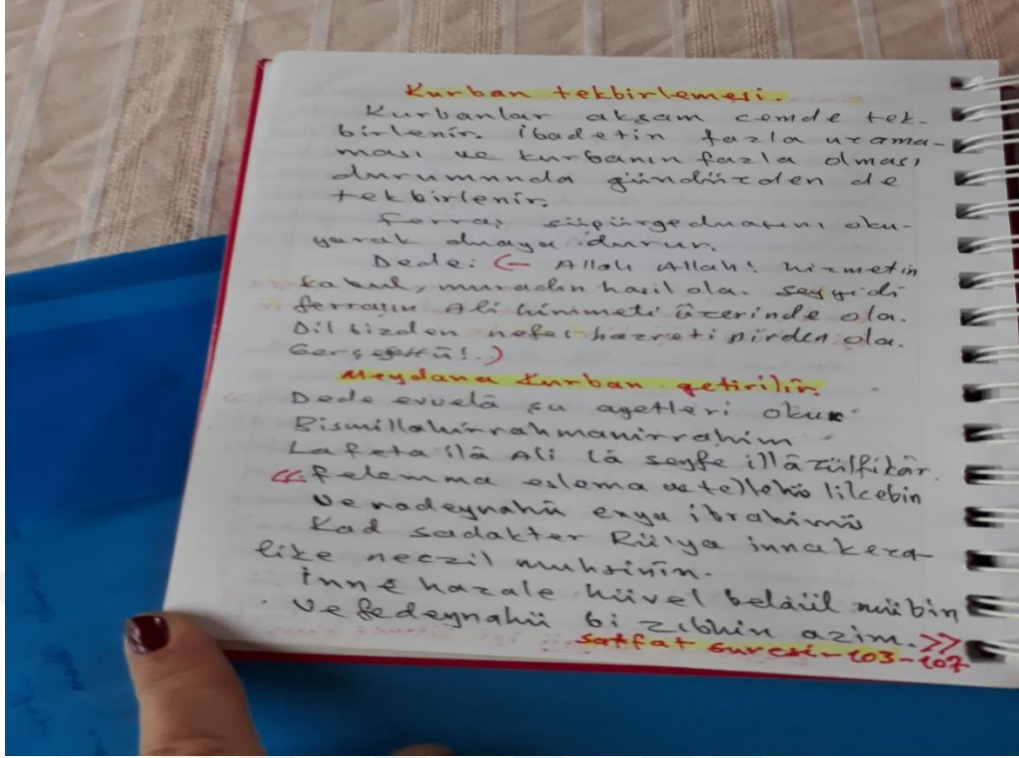 Kurban tekbirlemesi.
Kurbanlar akşam cemde tek-
birlenir. İbadetin fazla uzama-
ması ve kurbanın fazla olması
durumunda gündüzden de
tekbirlenir.
Ferraş süpürgeduasını oku-
yarak duaya durur.
Dede: (- Allah Allah! hizmetin
kabul, muradın hasıl ola. Seyyidi
ferraşın Ali himmeti üzerinde ola.
Dil bizden nefes hazreti pirden ola.
Meydana Kurban getirilir.
Dede evvelâ şu ayetleri okur
Bismillahirrahmanirrahim
Lafeta illâ Ali lâ seyfe illâ zülfikâr.
<< Felemma eslema ve tellehü lilcebin
Venadeynahü enya ibrahimü
Kad sadakter Rülya innakeza-
like neczil muhsinîn.
İnne hazale hüvel belâül mübin
Ve fedeynahü bi zıbhin azim. >>
saffat suresi-103-107